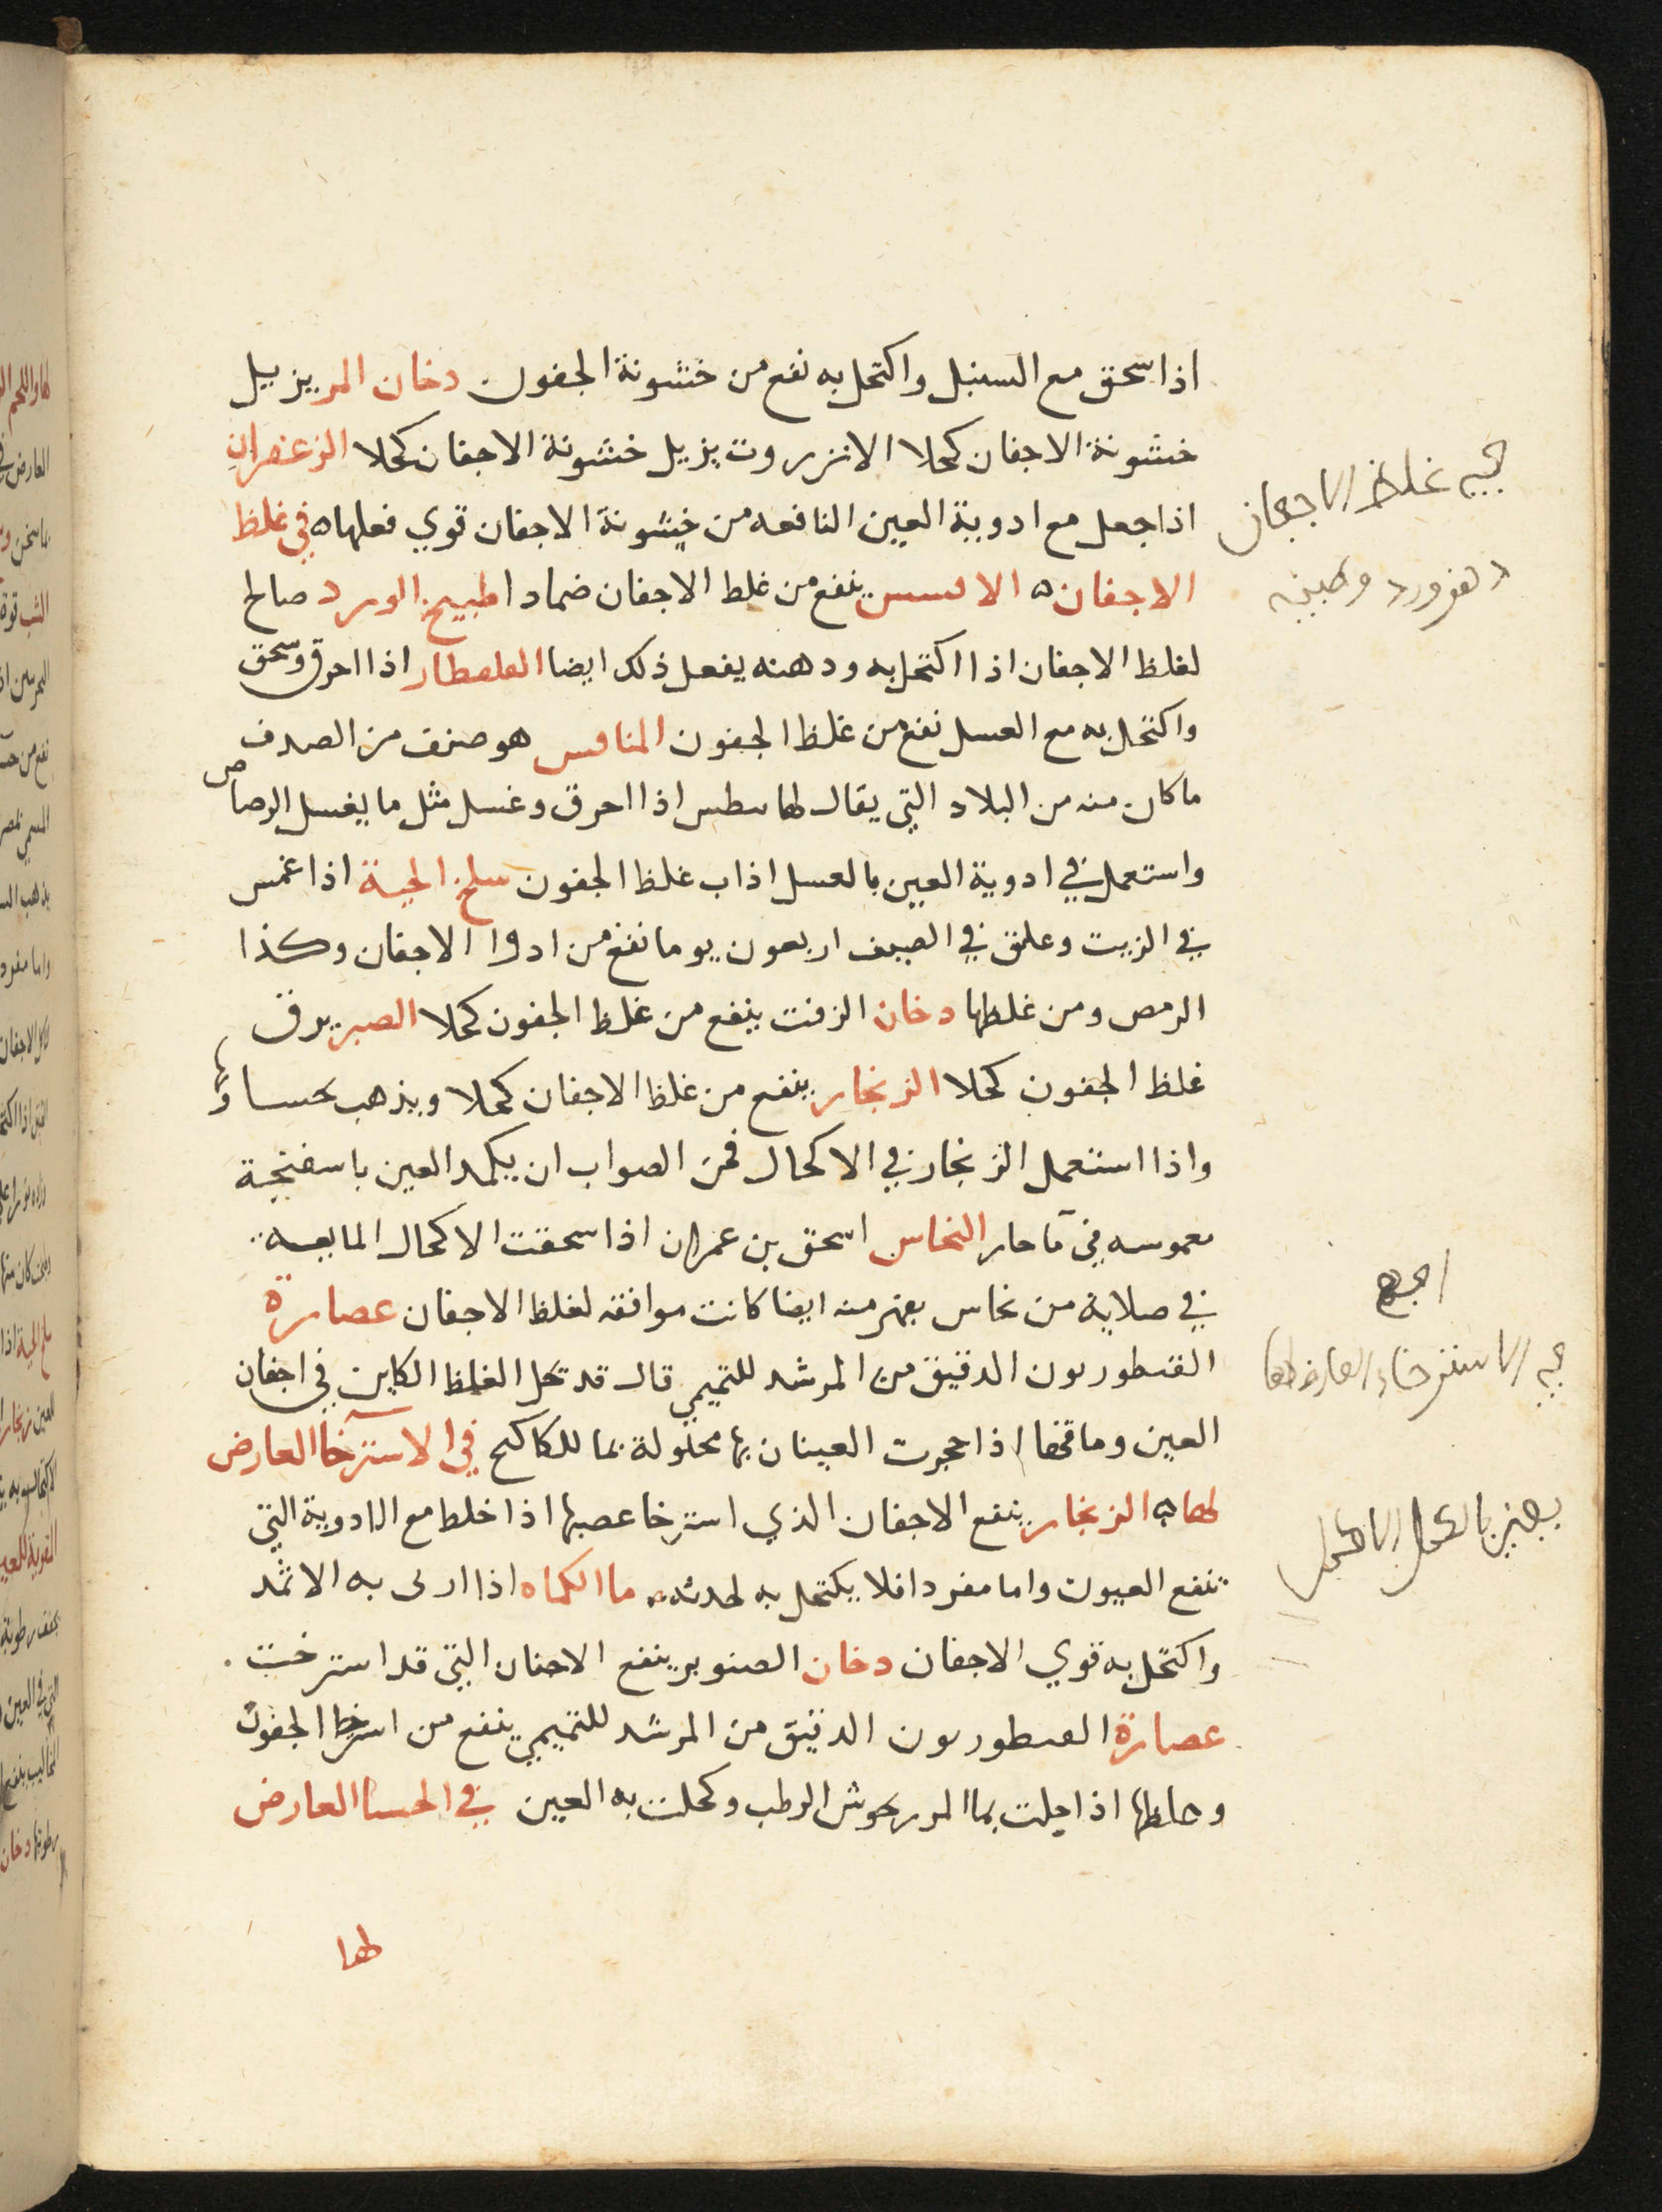 اذا سحق مع السنبل واكتحل به نفع من خشونة الجفون دخان المر يزيل
خشونة الاجفان كحلا الانزروت يزيل خشونة الاجفان كحلا الزعفران
اذا جعل مع ادوية العين النافعه من خشونة الاجفان قوي فعلها ه في غلظ
الاجفان ه الاسس ينفع من غلط الاجفان ضمادا طبيخ الورد صالح
لغلظ الاجفان اذا اكتحل به ودهنه يفعل ذلك ايضا القلقطار اذا احرق وسحق
واكتحل به مع العسل نفع من غلظ الجفون المنافس هو صنف من الصدف
ما كان منه من البلاد التي يقال لها سطس اذا احرق وغسل مثل ما يغسل الرصاص
واستعمل في ادوية العين بالعسل اذاب غلظ الجفون سلخ الحية اذا غمس
في الزيت وعلق في الصيف اربعون يوما نفع من ادوا الاجفان وكذا
الرمص ومن غلظها دخان الزفت ينفع من غلظ الجفون كحلا الصبر يرق
غلظ الجفون كحلا الزنجار ينفع من غلظ الاجفان كحلا ويذهب بحساوتها
واذا استعمل الزنجار في الاكحال فمن الصواب ان يكمد العين باسفنجة
مغموسه في مآ حار النحاس اسحق بن عمران اذا سحقت الاكحال المايعه
في صلاية من نحاس بفهر منه ايضا كانت موافقه لغلظ الاجفان عصارة
القنطوريون الدقيق من المرشد للتميمي قال قد تحل الغلظ الكاين في اجفان
العين وماقها اذا حجرت العينان بها محلولة بما للكاكنج في الاسترخآ العارض
لها ه الزنجار ينفع الاجفان الذي استرخا عصبها اذا خلط مع الادوية التي
تنفع العيون واما مفردا فلا يكتحل به لحدته ما الكماه اذا ارى به الاثمد
واكتحل به قوي الاجفان دخان الصنوبر ينفع الاجفان التي قد استرخت
عصارة القنطوريون الدقيق من المرشد للتميمي ينفع من استرخا الجفون
وغلظها اذا حلت بما المرزنجوش الرطب وكحلت به العين في الحسا العارض
لها
في غلظ الاجفان
في الاسترخاء العارض لها